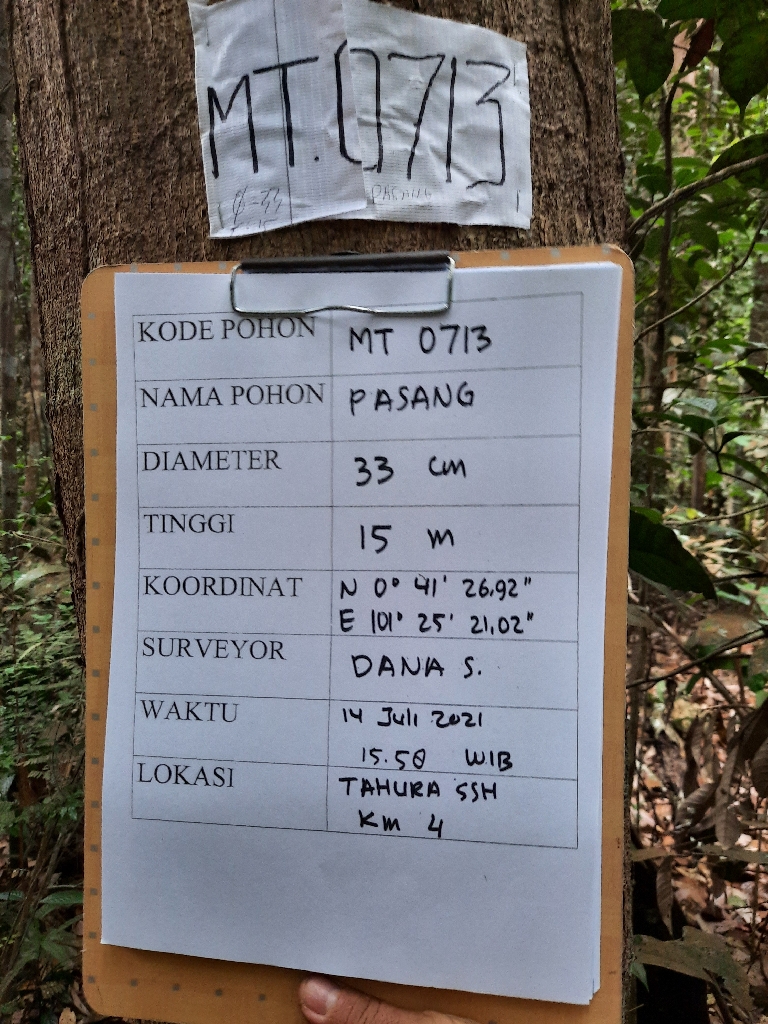 MT.0713
Ø=33
PASANG
15
KODE POHON MT 0713
NAMA POHON PASANG
DIAMETER 33 cm
TINGGI 15 m
KOORDINAT N 0° 41' 26.92"
E 101° 25' 21.02"
SURVEYOR DANA S.
WAKTU 14 Juli 2021
15.50 WIB
LOKASI TAHURA SSH
Km 4